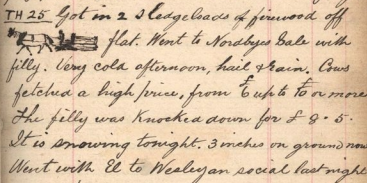 TH 25 Got in 2 sledgeloads of firewood off
flat. Went to Nordbyes Sale with
filly. Very cold afternoon, hail & rain. Cows
fetched a high price, from £ up to £ or more
The filly was knocked down for £ 8 - 5.
It is snowing tonight. 3 inches on ground now
Went with El to Wesleyan social last night